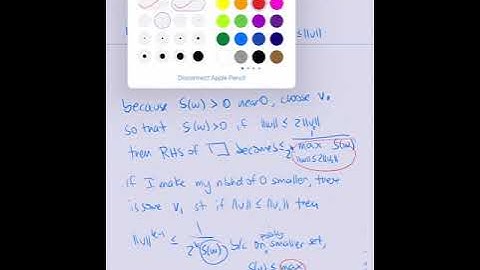 ≤ ||u||
Disconnect Apple Pencil
because S(w) > 0 near 0, choose v₁
so that S(w) > 0 if ||w|| ≤ 2||v₁||
then RHS of □ becomes ≤ 1/2ᵏ max S(w) ||w|| ≤ 2||v₁||
if I make my nbhd of 0 smaller, there
is some v₁ st if ||u|| ≤ ||v₁|| then
||u||ᵏ⁻¹ ≤ 1/2ᵏ S(w) b/c on possibly smaller set,
S(w) ≤ max